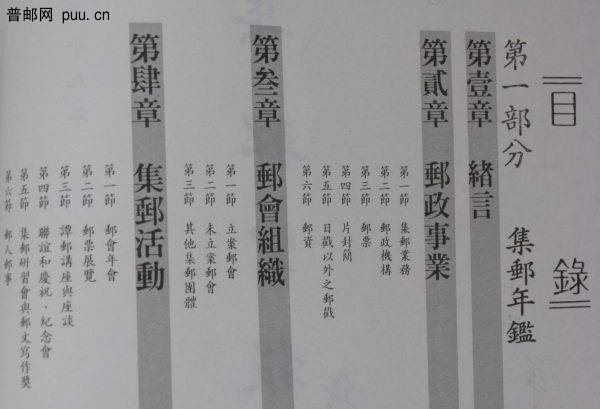 普邮网 puu.cn
目錄
第一部分 集郵年鑑
第壹章 緒言
第貳章 郵政事業
第一節 集郵業務
第二節 郵政機構
第三節 郵票
第四節 片封簡
第五節 日戳以外之郵戳
第六節 郵資
第叁章 郵會組織
第一節 立案郵會
第二節 未立案郵會
第三節 其他集郵團體
第肆章 集郵活動
第一節 郵會年會
第二節 郵票展覽
第三節 譚郵講座與座談
第四節 聯誼和慶祝、紀念會
第五節 集郵研習會與郵文寫作獎
第六節 郵人郵事